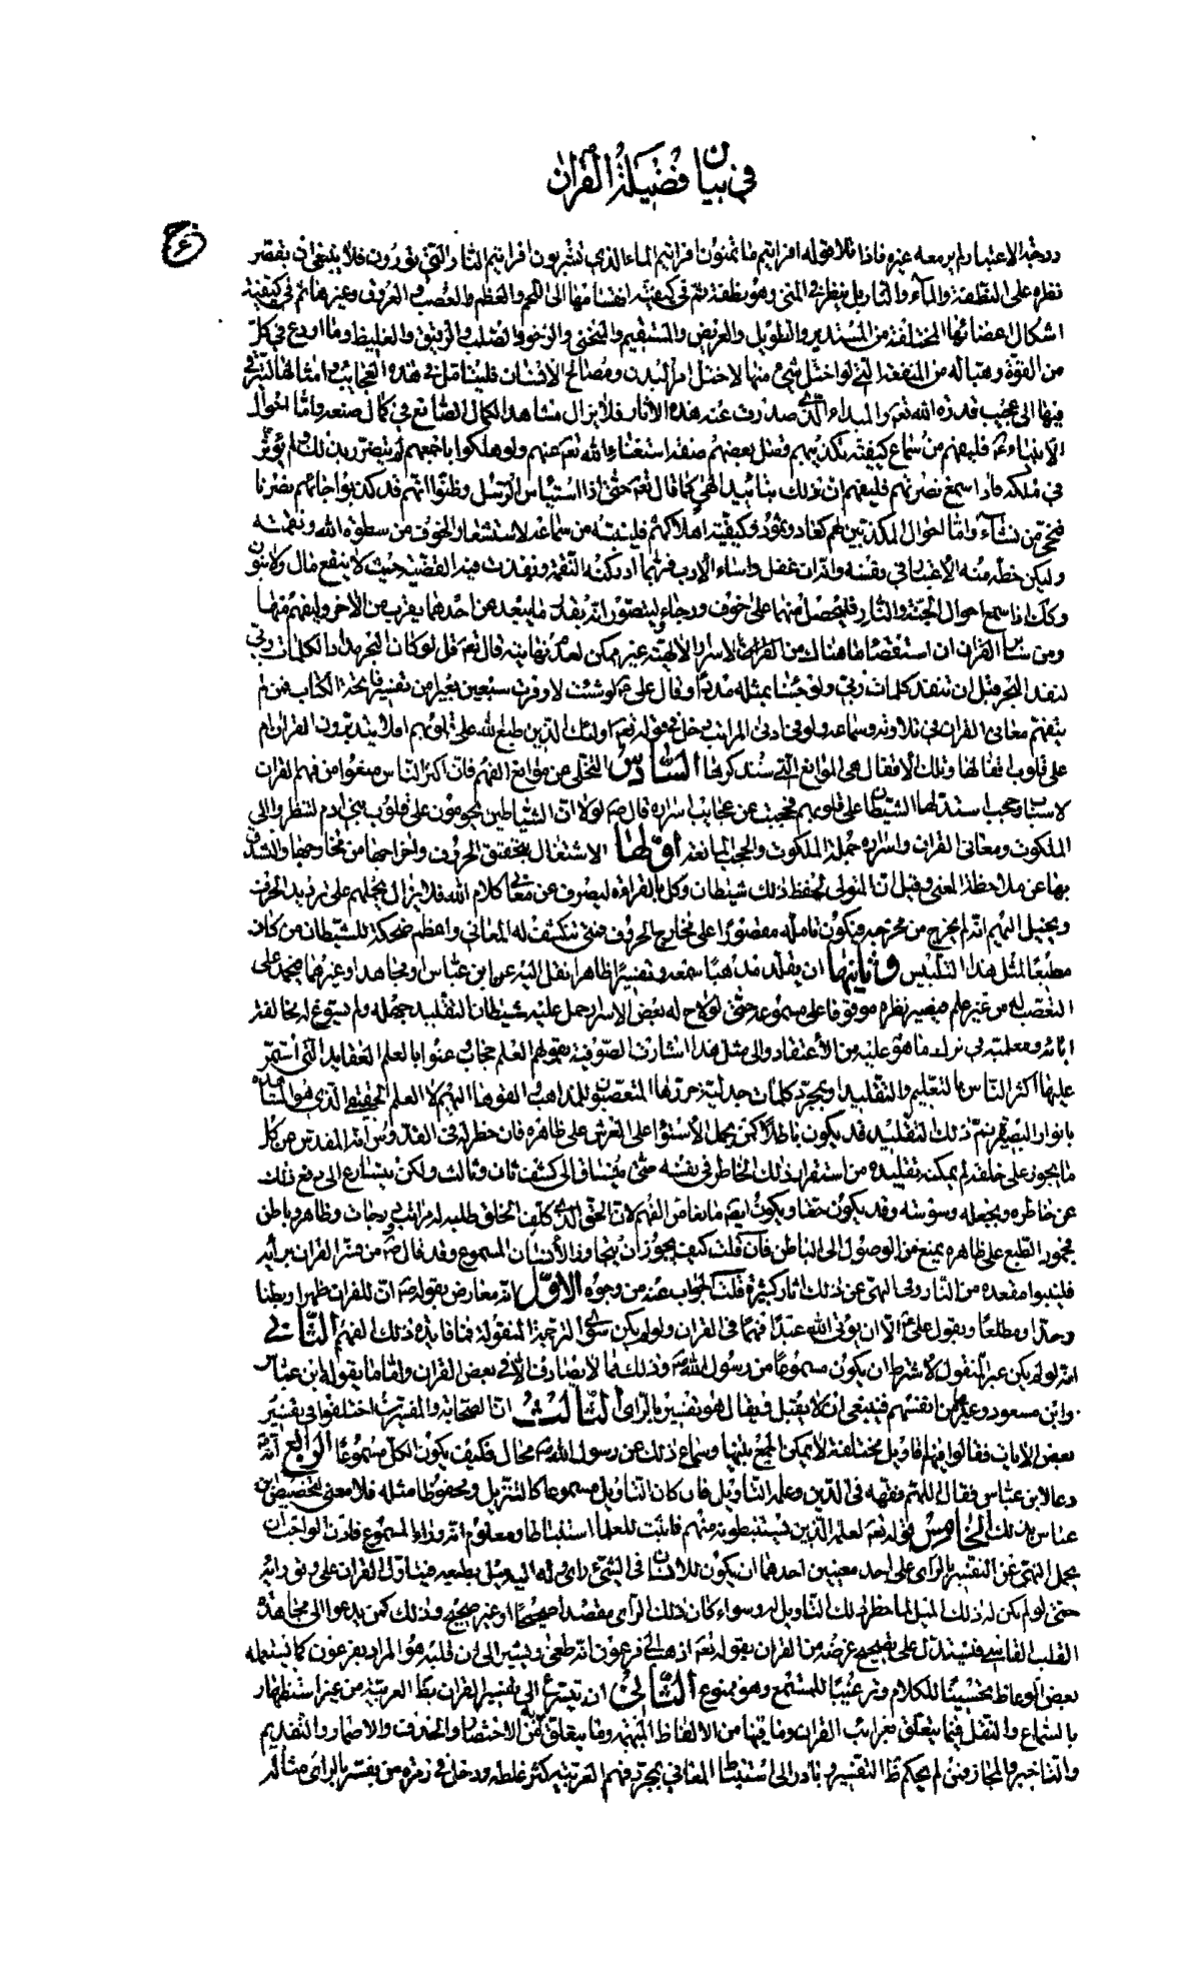 في بيان فضيلة القران
ودرجة الاعتبار لم ير معه غيره فاذا تلا قوله افرايتم ما تمنون افرايتم الماء الذي تشربون افرايتم النار التي تورون فلا ينبغي ان يقصر
نظره على النطفة والماء والنار بل ينظر في المني وهو نطفة ثم في كيفية انقسامها الى اللحم والعظم والعصب والعروق وغيرها ثم في كيفية
اشكال اعضائها المختلفة من المستدير والطويل والعريض والمستقيم والمنحني والرخو والصلب والرقيق والغليظ وما اودع في كل
من القوة وهيا له من المنفعة التي لو اختل شيء منها لاختل امر البدن ومصالح الانسان فليتامل في هذه العجائب وامثالها ليترقى
فيها الى عجيب قدرة الله تعم والمبداء الذي صدرت عنه هذه الاثار فلا يزال مشاهدا لكمال الصانع في كمال صنعه واما احوال
الانبياء ع فليفهم من سماع كيفية تكذيبهم وقتل بعضهم صفة استغناء الله تعم عنهم ولو هلكوا باجمعهم لم يتضرر بذلك ولم يؤثر
في ملكه فاذا سمع نصرتهم فليفهم ان ذلك بتائيد الهي كما قال تعم حتى اذا استيأس الرسل وظنوا انهم قد كذبوا جاءهم نصرنا
فنجي من نشاء واما احوال المكذبين لهم كعاد وثمود وكيفية اهلاكهم فليتنبه من سماعه لاستشعار الخوف من سطوة الله ونقمته
وليكن حظه منه الاعتبار في نفسه وانه ان غفل واساء الادب فربما ادركته النقمة ونفذت فيه القضية حيث لا ينفع مال ولا بنون
وكك اذا سمع احوال الجنة والنار فليحصل منهما على خوف ورجاء وليتصور انه بقدر ما يبعد من احدهما يقرب من الاخر وليفهم منهما
ومن سائر القران ان استقصاء ما هناك من الاسرار الالهية غير ممكن لعدم نهايته قال تعم قل لو كان البحر مدادا لكلمات ربي
لنفد البحر قبل ان تنفد كلمات ربي ولو جئنا بمثله مددا وقال علي ع لو شئت لاوقرت سبعين بعيرا من تفسير فاتحة الكتاب فمن لم
يتفهم معاني القران في تلاوته وسماعه ولو في ادنى المراتب دخل في قوله تعم اولئك الذين طبع الله على قلوبهم افلا يتدبرون القران ام
على قلوب اقفالها وتلك الاقفال هي الموانع التي سنذكرها السادس التخلي عن موانع الفهم فان اكثر الناس منعوا من فهم القران
لاسباب وحجب اسدلها الشيطان على قلوبهم فحجبت عن عجايب اسراره قال ص لولا ان الشياطين يحومون على قلوب بني ادم لنظروا الى
الملكوت ومعاني القران واسراره من جملة الملكوت والحجب المانعة اولها الاشتغال بتحقيق الحروف واخراجها من مخارجها والتشدق
بها عن ملاحظة المعنى وقيل ان المتولي لحفظ ذلك شيطان وكل بالقراءة ليصرف عن معاني كلام الله فلا يزال يحملهم على ترديد الحرف
ويخيل اليهم انه لم يخرج من مخرجه فيكون تامله مقصورا على مخارج الحروف فمتى تنكشف له المعاني واعظم ضحكة للشيطان من كان
مطيعا لمثل هذا التلبيس وثانيها ان يقلد مذهبا سمعه وتفسيرا ظاهرا نقل اليه عن ابن عباس او مجاهد او غيرهما فيجمد على
التعصب له من غير علم فيصير نظره موقوفا على مسموعه حتى لو لاح له بعض الاسرار حمل عليه شيطان التقليد جهله ولم يسوغ له مخالفة
ابائه ومعلميه في ترك ما هو عليه من الاعتقاد والى مثل هذا اشارت الصوفية بقولهم العلم حجاب وعنوا بالعلم العقايد التي استمر
عليها اكثر الناس بالتعليم والتقليد او بمجرد كلمات جدلية حررها المتعصبون للمذاهب القوها اليهم لا العلم الحقيقي الذي هو المشاهدة
بانوار البصيرة ثم ذلك التقليد قد يكون باطلا كمن يحمل الاستوا على العرش على ظاهره فان خطر له في القدوس انه المقدس من كل
ما يجوز على خلقه لم يمكنه تقليده من استقرار ذلك الخاطر في نفسه حتى ينساق الى كشف ثان وثالث ولكن يتسارع الى دفع ذلك
عن خاطره ويجعله وسوسة وقد يكون حقا ويكون ايضا مانعا من الفهم لان الحق الذي كلف الخلق طلبه له مراتب ودرجات وظاهر وباطن
فجمود الطبع على ظاهره يمنع من الوصول الى الباطن فان قلت كيف يجوز ان يتجاوز الانسان المسموع وقد قال ص من فسر القران برأيه
فليتبوا مقعده من النار وفي النهي عن ذلك اثار كثيرة قلت الجواب عنه من وجوه الاول انه معارض بقوله ص ان للقران ظهرا وبطنا
وحدا ومطلعا وبقول علي ع الا ان يؤتي الله عبدا فهما في القران ولو لم يكن سوى الترجمة المنقولة فما فايدة ذلك الفهم الثاني
انه لو لم يكن غير المنقول لاشترط ان يكون مسموعا من رسول الله ص وذلك مما لا يصادف الا في بعض القران واما ما يقوله ابن عباس
وابن مسعود وغيرهم من انفسهم فينبغي ان لا يقبل ويقال هو تفسير بالراي الثالث ان الصحابة والمفسرين اختلفوا في تفسير
بعض الايات فقالوا فيها اقاويل مختلفة لا يمكن الجمع بينها وسماع ذلك عن رسول الله ص محال فكيف يكون الكل مسموعا الرابع انه ص
دعا لابن عباس فقال اللهم فقهه في الدين وعلمه التاويل فان كان التاويل مسموعا كالتنزيل ومحفوظا مثله فلا معنى لتخصيص ابن
عباس بذلك الخامس قوله تعم لعلمه الذين يستنبطونه منهم فاثبت للعلما استنباطا ومعلوم انه وراء المسموع فاذن الواجب ان
يحمل النهي عن التفسير بالراي على احد معنيين احدهما ان يكون للانسان في الشيء راي وله اليه ميل بطبعه فيتاول القران على وفق رايه
حتى لو لم يكن له ذلك الميل لما خطر ذلك التاويل له وسواء كان ذلك الراي مقصدا صحيحا او غير صحيح وذلك كمن يدعو الى مجاهدة
القلب القاسي فيستدل على تصحيح غرضه من القران بقوله تعم اذهب الى فرعون انه طغى ويشير الى ان قلبه هو المراد بفرعون كما يستعمله
بعض الوعاظ تحسينا للكلام وترغيبا للمستمع وهو ممنوع الثاني ان يتسرع الى تفسير القران بظاهر العربية من غير استظهار
بالسماع والنقل فيما يتعلق بغرائب القران وما فيها من الالفاظ المبهمة وما يتعلق به من الاختصار والحذف والاضمار والتقديم
والتاخير والمجاز فمن لم يحكم ظاهر التفسير وبادر الى استنباط المعاني بمجرد فهم العربية كثر غلطه ودخل في زمرة من يفسر بالراي مثاله